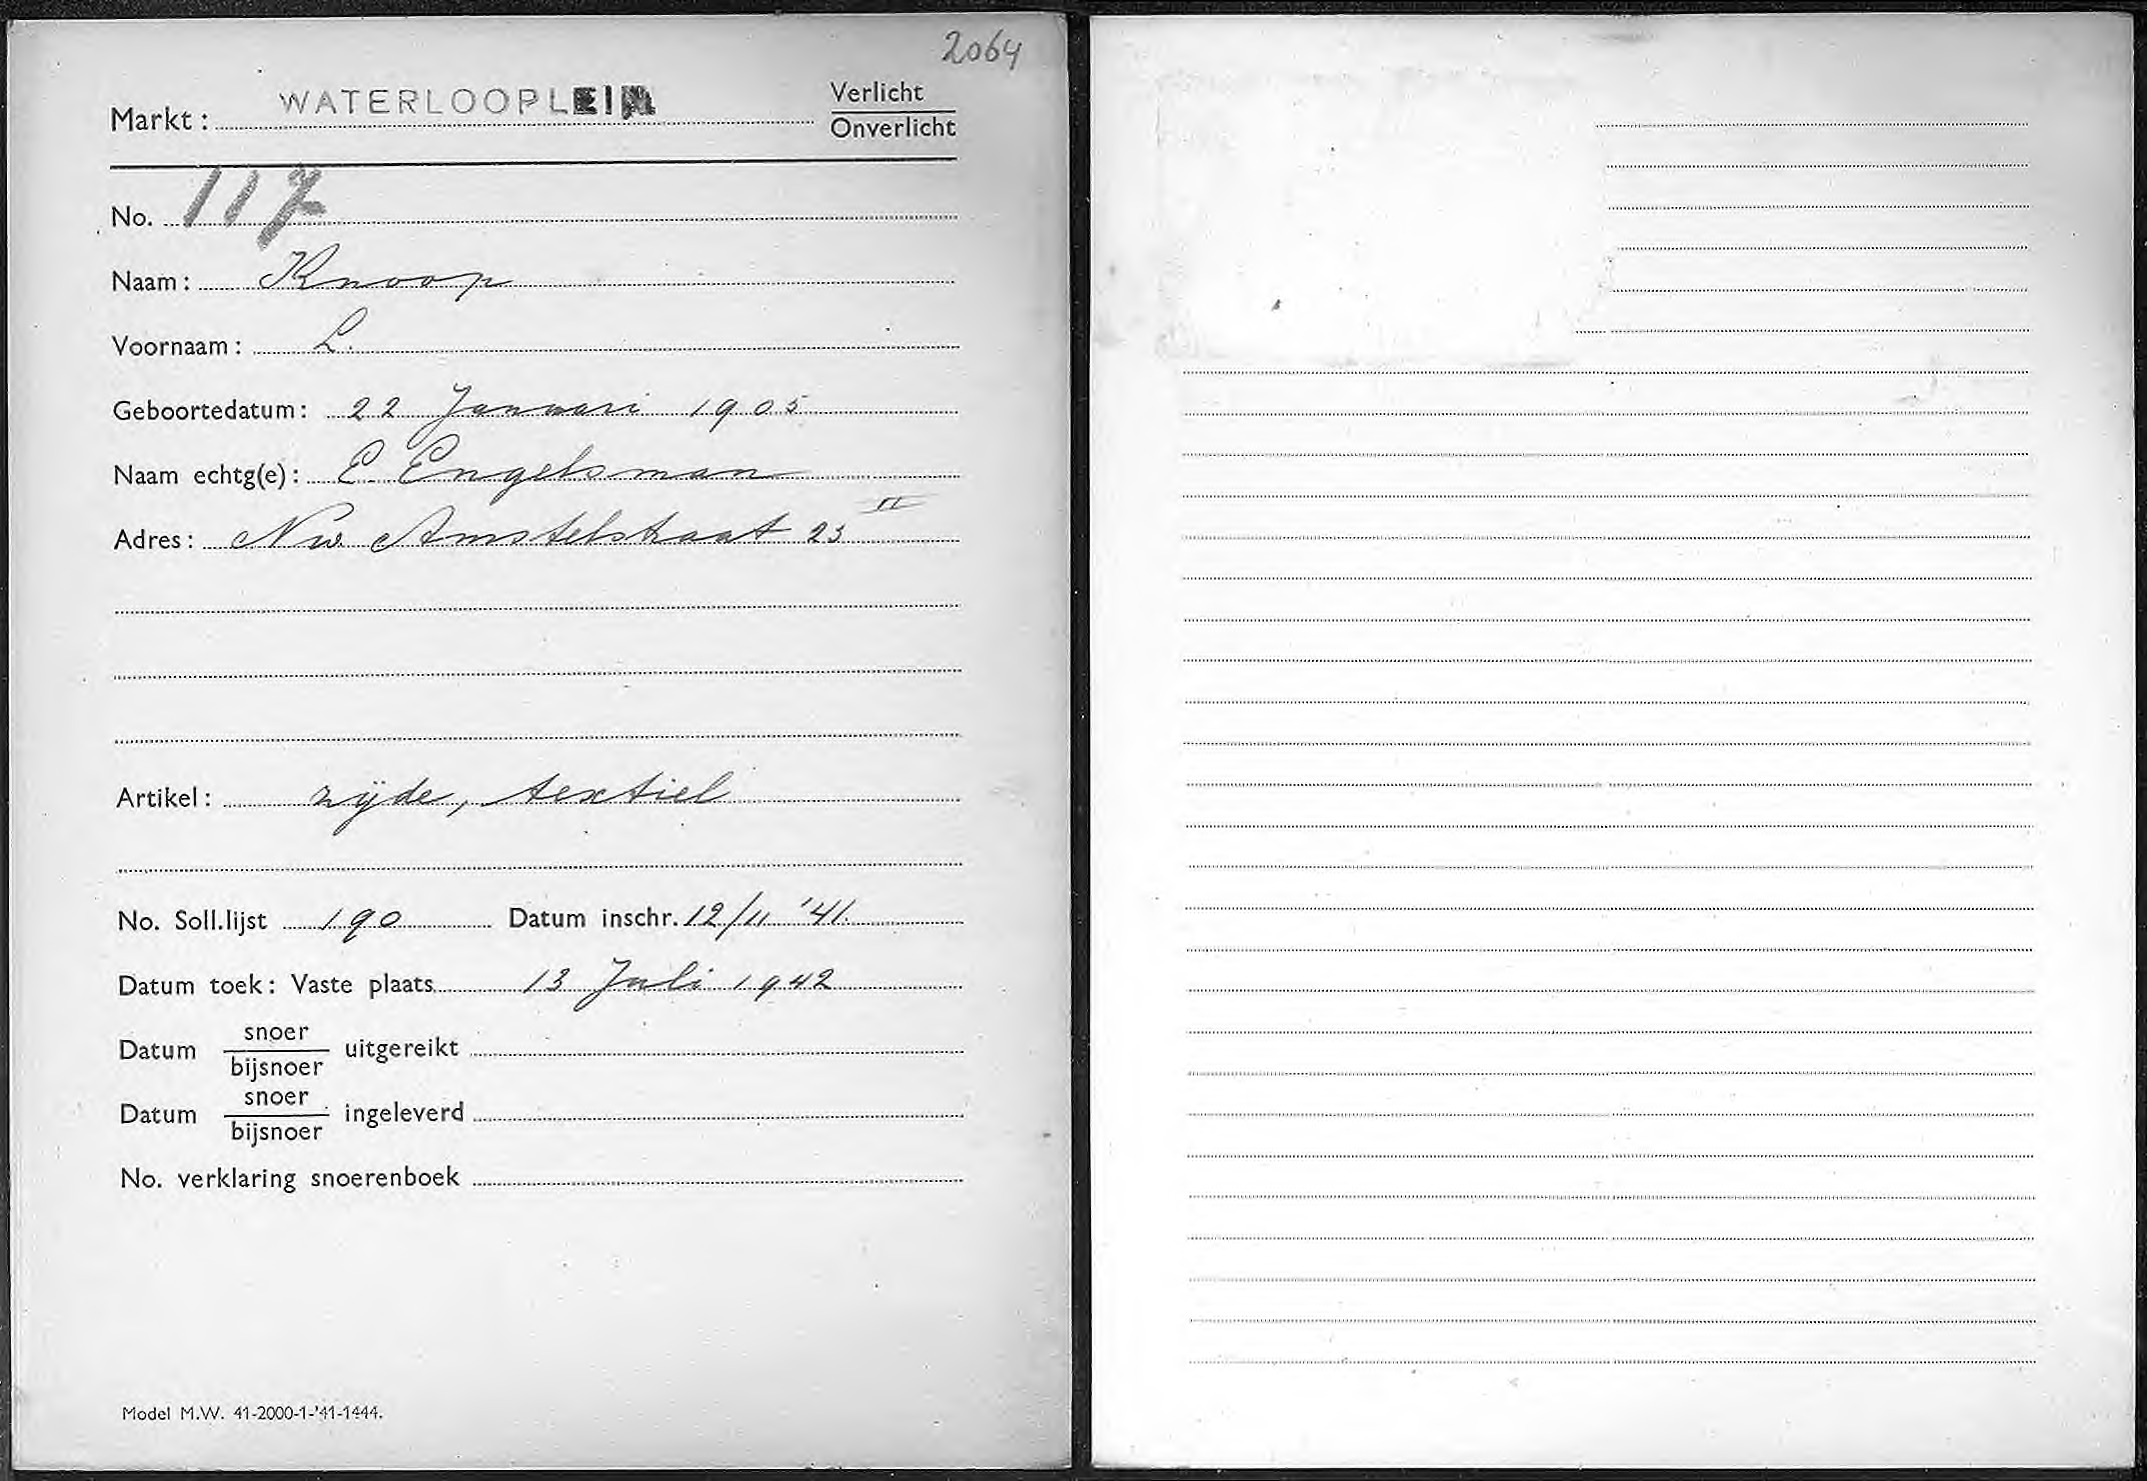 2064
Markt: WATERLOOPLEIN Verlicht
Onverlicht
No. 117
Naam: Knoop
Voornaam: L.
Geboortedatum: 22 Januari 1905
Naam echtg(e): E. Engelsman
Adres: Nw. Amstelstraat 23 II
Artikel: zijde, textiel
No. Soll.lijst 190 Datum inschr. 12/11 '41.
Datum toek: Vaste plaats 13 Juli 1942
Datum snoer
bijsnoer uitgereikt
Datum snoer
bijsnoer ingeleverd
No. verklaring snoerenboek
Model M.W. 41-2000-1-'41-1444.